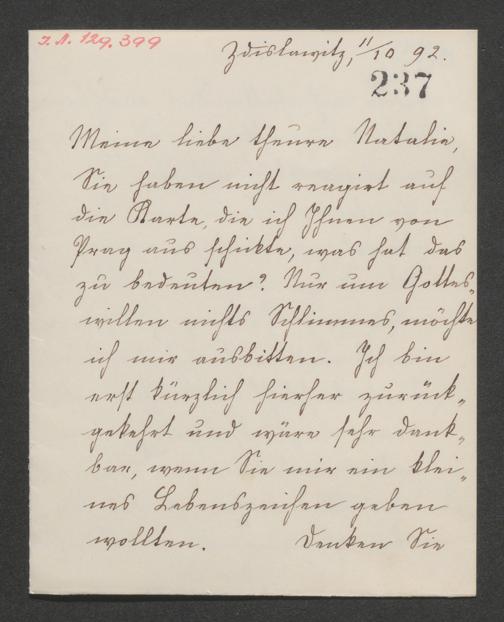 I.N. 129.399
Zdislawitz, 11/10 92.
237
Meine liebe theure Natalie,
Sie haben nicht reagirt auf
die Karte, die ich Ihnen von
Prag aus schickte, was hat das
zu bedeuten? Nur um Gottes-
willen nichts Schlimmes, möchte
ich mir ausbitten. Ich bin
erst kürzlich hierher zurück-
gekehrt und wäre sehr dank-
bar, wenn Sie mir ein klei-
nes Lebenszeichen geben
wollten. Denken Sie